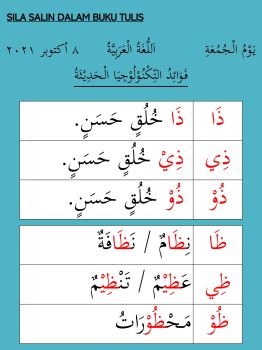 SILA SALIN DALAM BUKU TULIS
يَوْمُ الْجُمُعَةِ اَللُّغَةُ الْعَرَبِيَّةُ ٨ أكتوبر ٢٠٢١
فَوَائِدُ التِّكْنُولُوْجِيَا الْحَدِيْثَةُ
ذَا ذَا خُلُقٍ حَسَنٍ.
ذِي ذِيْ خُلُقٍ حَسَنٍ.
ذُوْ ذُوْ خُلُقٍ حَسَنٍ.
ظَا نِظَامٌ / نَظَافَةٌ
ظِي عَظِيْمٌ / تَنْظِيْمٌ
ظُوْ مَحْظُوْرَاتُ